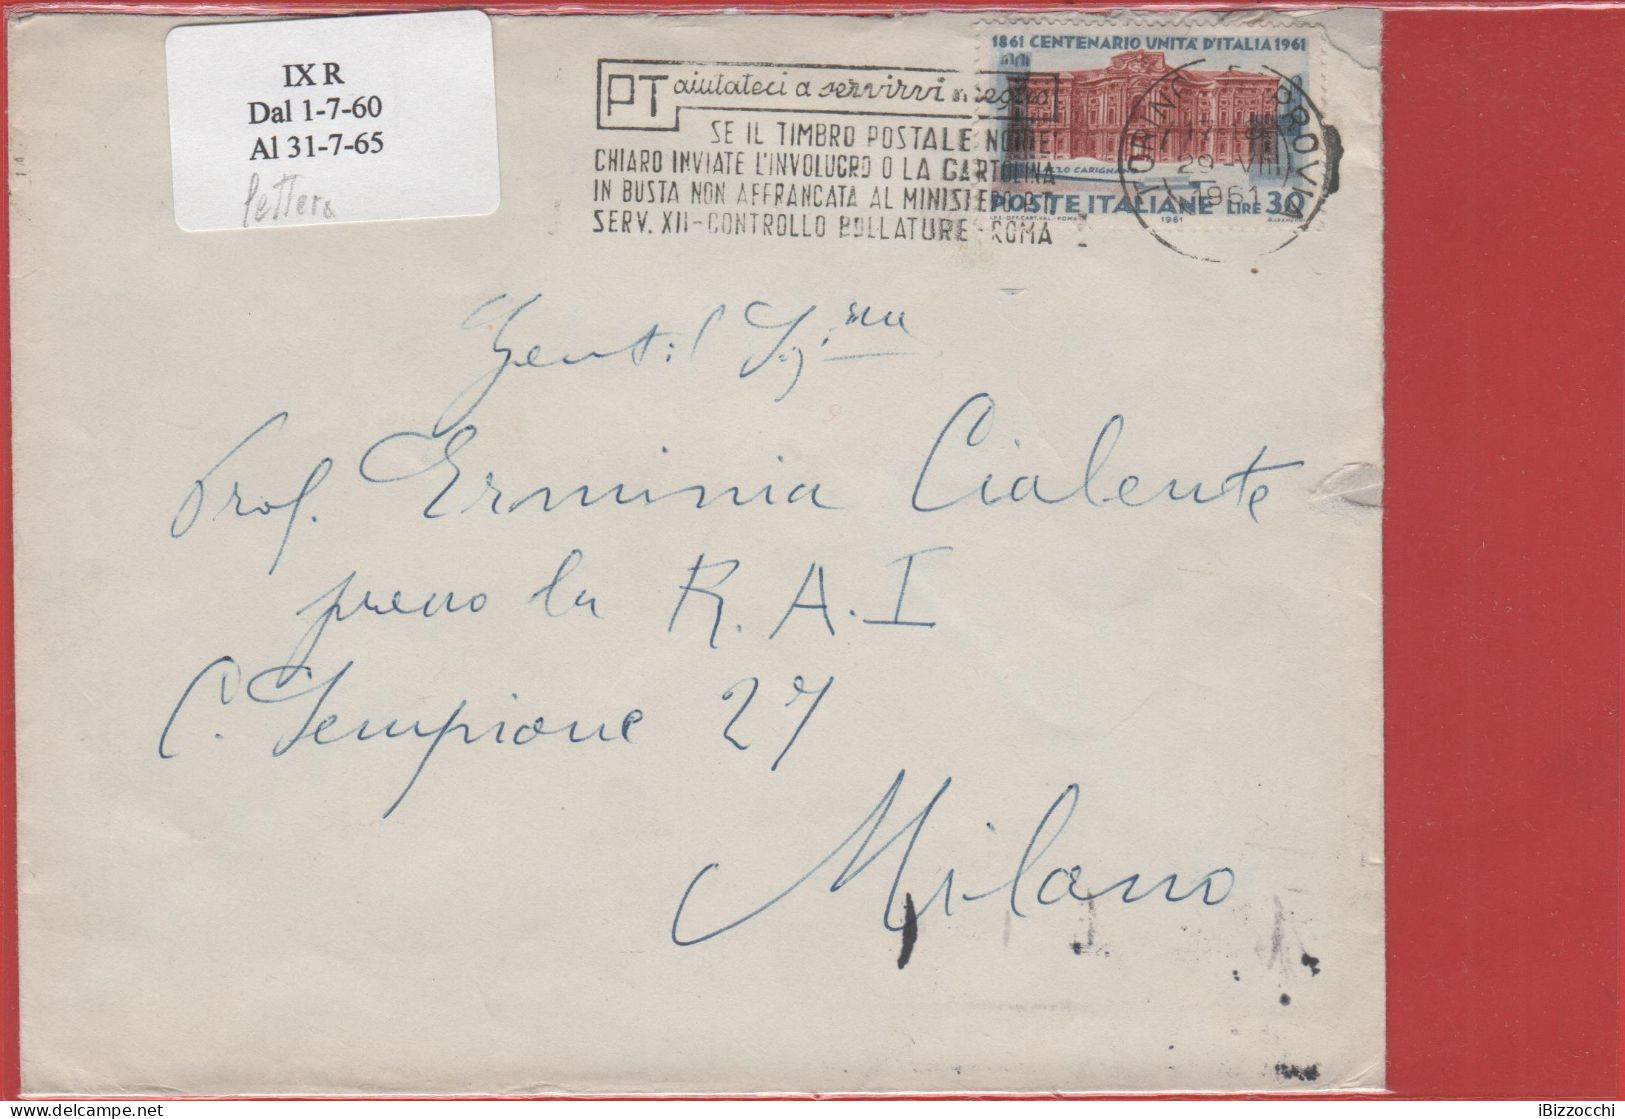 IX R
Dal 1-7-60
Al 31-7-65
lettera
PT aiutateci a servirvi meglio
SE IL TIMBRO POSTALE NON E'
CHIARO INVIATE L'INVOLUCRO O LA CARTOLINA
IN BUSTA NON AFFRANCATA AL MINISTERO P.T.
SERV. XII-CONTROLLO BOLLATURE-ROMA
1861 CENTENARIO UNITÀ D'ITALIA 1961
PALAZZO CARIGNANO
POSTE ITALIANE LIRE 30
I.P.S.-OFF.CART.VAL.-ROMA 1961
TORINO FERROVIA
29 VIII
1961
Gentil Sig.na
Prof. Erminia Cialente
presso la R.A.I
C. Sempione 27
Milano
iBizzocchi